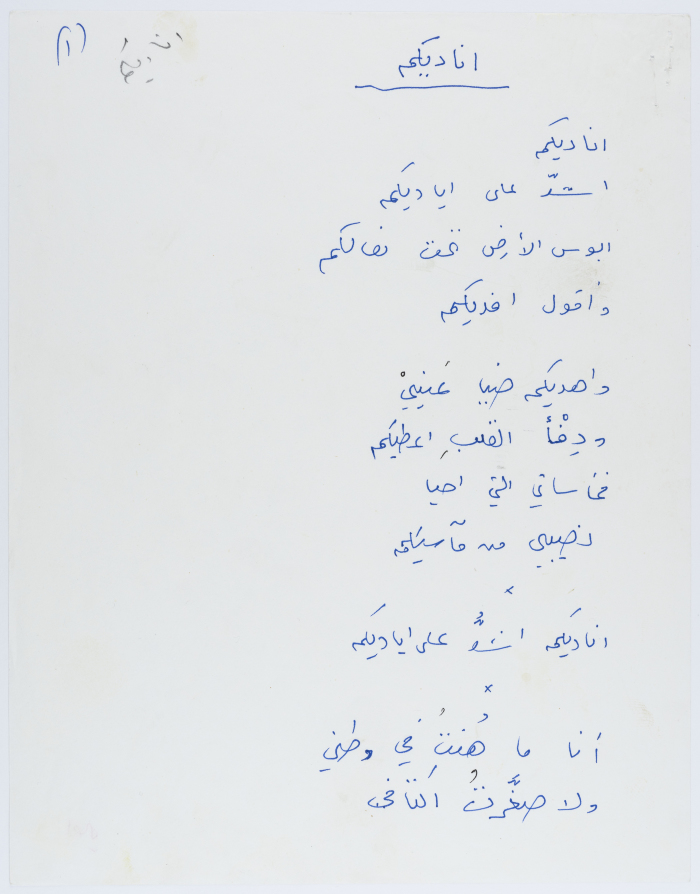 (١)
اناديكم
اناديكم
اناديكم
اشدّ على اياديكم
ابوس الأرض تحت نعالكم
وأقول افديكم
واهديكم ضيا عَينيْ
ودِفْأ القلبِ اعطيكم
فمأساتي التي احيا
نصيبي من مآسيكم
x
اناديكم اشدُّ على اياديكم
x
أنا ما هُنتُ في وطني
ولا صغَّرتُ اكتافي